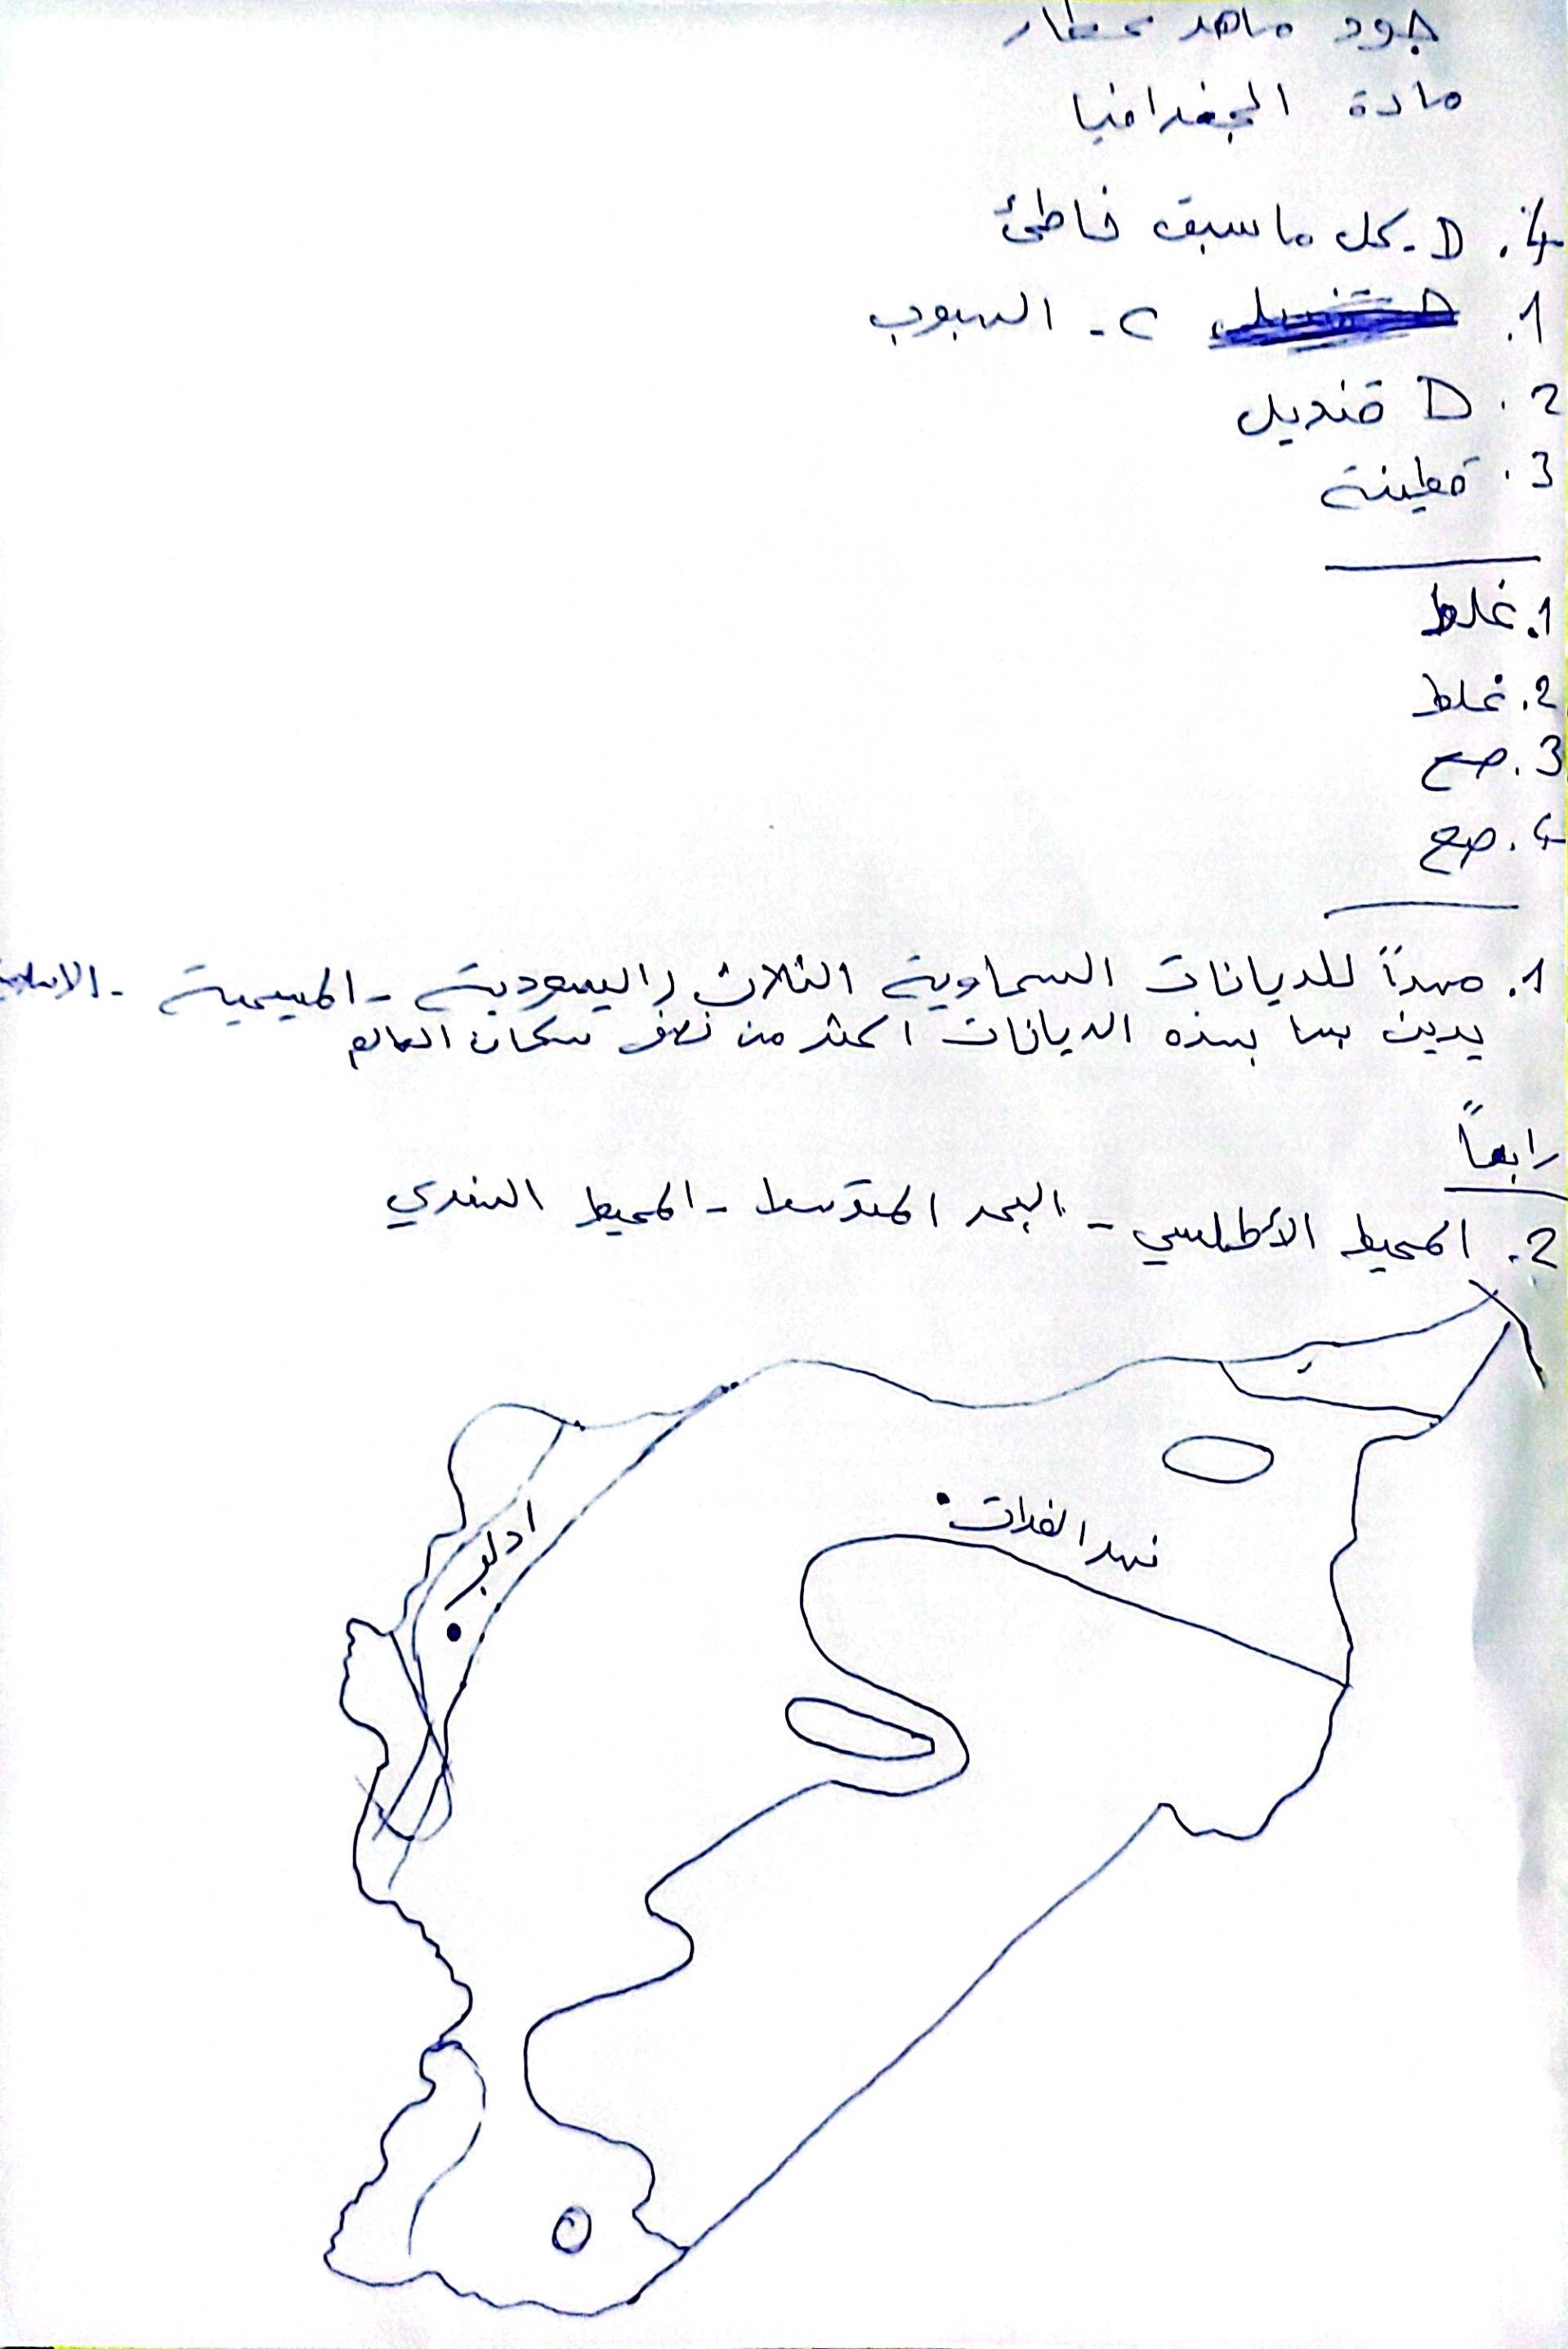 جود ماهر عطار
مادة الجغرافيا
4. D- كل ما سبق خاطئ
1. C - الهبوب
2. D قنديل
3. قطينة
1. غلط
2. غلط
3. صح
4. صح
1. مهداً للديانات السماوية الثلاث (اليهودية - المسيحية -
يدين بها بهذه الديانات اكثر من نصف سكان العالم
رابعاً
2. المحيط الأطلسي - البحر المتوسط - المحيط الهندي
نهر الفرات
ادلب